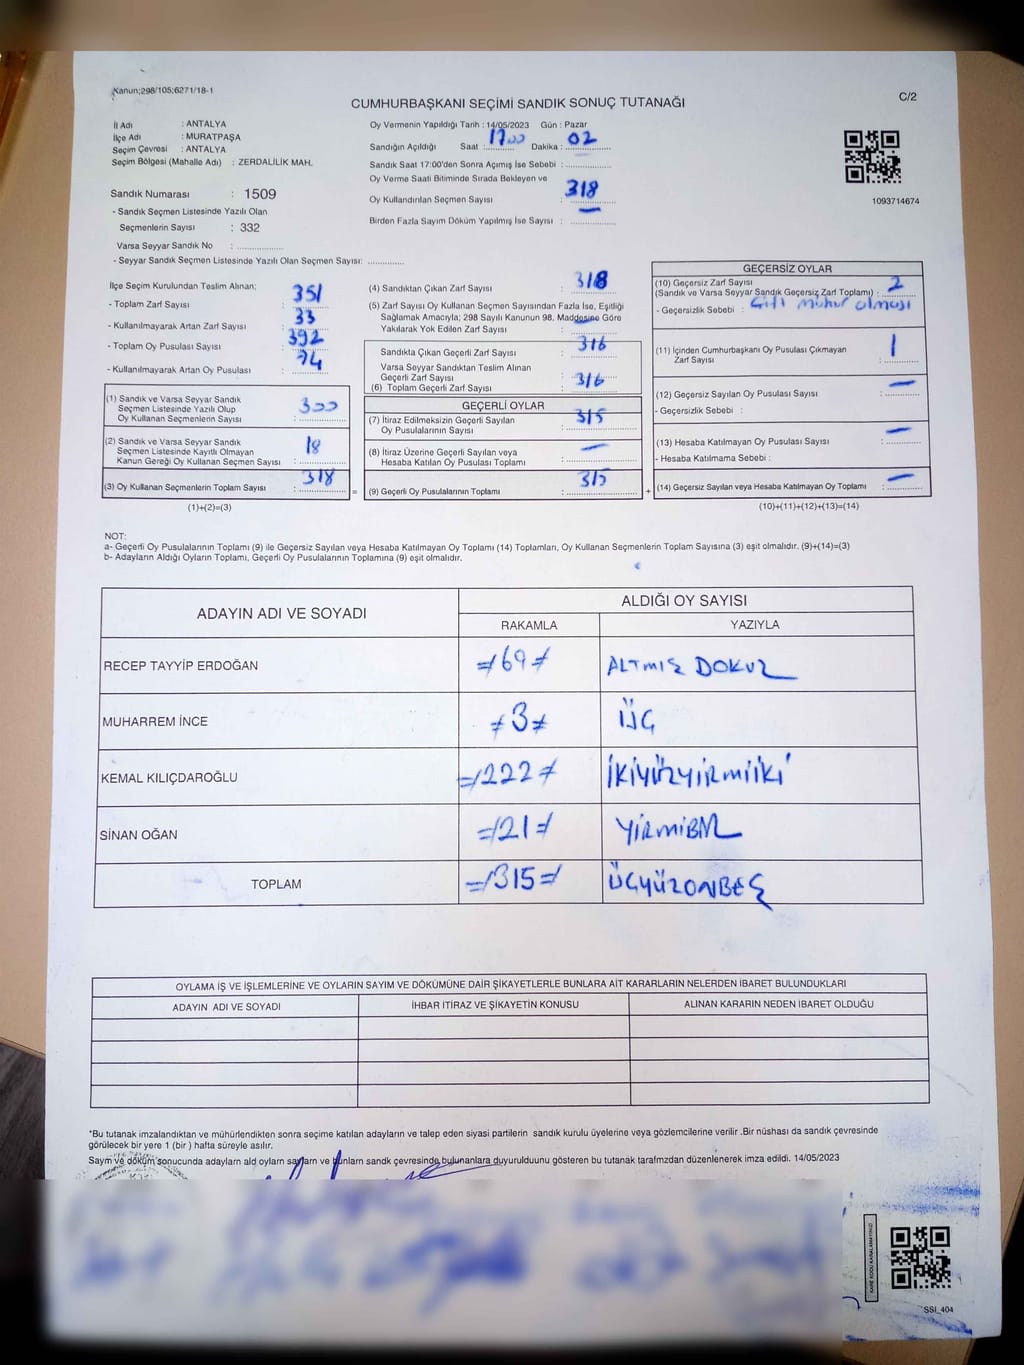 Kanun;298/105;6271/18-1
CUMHURBAŞKANI SEÇİMİ SANDIK SONUÇ TUTANAĞI
C/2
İl Adı : ANTALYA
İlçe Adı : MURATPAŞA
Seçim Çevresi : ANTALYA
Seçim Bölgesi (Mahalle Adı) : ZERDALİLİK MAH.
Sandık Numarası : 1509
- Sandık Seçmen Listesinde Yazılı Olan
Seçmenlerin Sayısı : 332
Varsa Seyyar Sandık No : ..............
- Seyyar Sandık Seçmen Listesinde Yazılı Olan Seçmen Sayısı: ............
Oy Vermenin Yapıldığı Tarih : 14/05/2023 Gün : Pazar
Sandığın Açıldığı Saat : 1700 Dakika : 02
Sandık Saat 17:00'den Sonra Açımış İse Sebebi : ..............
Oy Verme Saati Bitiminde Sırada Bekleyen ve
Oy Kullandırılan Seçmen Sayısı : 318
Birden Fazla Sayım Döküm Yapılmış İse Sayısı : —
1093714674
İlçe Seçim Kurulundan Teslim Alınan;
- Toplam Zarf Sayısı : 351
- Kullanılmayarak Artan Zarf Sayısı : 33
- Toplam Oy Pusulası Sayısı : 392
- Kullanılmayarak Artan Oy Pusulası : 74
(1) Sandık ve Varsa Seyyar Sandık
Seçmen Listesinde Yazılı Olup
Oy Kullanan Seçmenlerin Sayısı : 300
(2) Sandık ve Varsa Seyyar Sandık
Seçmen Listesinde Kayıtlı Olmayan
Kanun Gereği Oy Kullanan Seçmen Sayısı : 18
(3) Oy Kullanan Seçmenlerin Toplam Sayısı : 318
(1)+(2)=(3)
(4) Sandıktan Çıkan Zarf Sayısı : 318
(5) Zarf Sayısı Oy Kullanan Seçmen Sayısından Fazla İse, Eşitliği
Sağlamak Amacıyla; 298 Sayılı Kanunun 98. Maddesine Göre
Yakılarak Yok Edilen Zarf Sayısı : —
Sandıkta Çıkan Geçerli Zarf Sayısı : 316
Varsa Seyyar Sandıktan Teslim Alınan
Geçerli Zarf Sayısı :
(6) Toplam Geçerli Zarf Sayısı : 316
GEÇERLİ OYLAR
(7) İtiraz Edilmeksizin Geçerli Sayılan
Oy Pusulalarının Sayısı : 315
(8) İtiraz Üzerine Geçerli Sayılan veya
Hesaba Katılan Oy Pusulası Toplamı : —
= (9) Geçerli Oy Pusulalarının Toplamı : 315 +
GEÇERSİZ OYLAR
(10) Geçersiz Zarf Sayısı
(Sandık ve Varsa Seyyar Sandık Geçersiz Zarf Toplamı) : 2
- Geçersizlik Sebebi : Çift mühür olması
(11) İçinden Cumhurbaşkanı Oy Pusulası Çıkmayan
Zarf Sayısı : 1
(12) Geçersiz Sayılan Oy Pusulası Sayısı : —
- Geçersizlik Sebebi :
(13) Hesaba Katılmayan Oy Pusulası Sayısı : —
- Hesaba Katılmama Sebebi :
(14) Geçersiz Sayılan veya Hesaba Katılmayan Oy Toplamı : —
(10)+(11)+(12)+(13)=(14)
NOT:
a- Geçerli Oy Pusulalarının Toplamı (9) ile Geçersiz Sayılan veya Hesaba Katılmayan Oy Toplamı (14) Toplamları, Oy Kullanan Seçmenlerin Toplam Sayısına (3) eşit olmalıdır. (9)+(14)=(3)
b- Adayların Aldığı Oyların Toplamı, Geçerli Oy Pusulalarının Toplamına (9) eşit olmalıdır.
ADAYIN ADI VE SOYADI
ALDIĞI OY SAYISI
RAKAMLA YAZIYLA
RECEP TAYYİP ERDOĞAN =/69≠ ALTMIŞ DOKUZ
MUHARREM İNCE ≠3≠ ÜÇ
KEMAL KILIÇDAROĞLU =/222≠ İKİYÜZYİRMİİKİ
SİNAN OĞAN =/21≠ YİRMİBİR
TOPLAM =/315≠ ÜÇYÜZONBEŞ
OYLAMA İŞ VE İŞLEMLERİNE VE OYLARIN SAYIM VE DÖKÜMÜNE DAİR ŞİKAYETLERLE BUNLARA AİT KARARLARIN NELERDEN İBARET BULUNDUKLARI
ADAYIN ADI VE SOYADI İHBAR İTİRAZ VE ŞİKAYETİN KONUSU ALINAN KARARIN NEDEN İBARET OLDUĞU
*Bu tutanak imzalandıktan ve mühürlendikten sonra seçime katılan adayların ve talep eden siyasi partilerin sandık kurulu üyelerine veya gözlemcilerine verilir .Bir nüshası da sandık çevresinde
görülecek bir yere 1 (bir ) hafta süreyle asılır.
Saym ve döküm sonucunda adayların ald oyların sayları ve bunlarn sandk çevresinde bulunanlara duyurulduunu gösteren bu tutanak tarafmzdan düzenlenerek imza edildi. 14/05/2023
KARE KODU KARALAMAYINIZ!
SSI_404